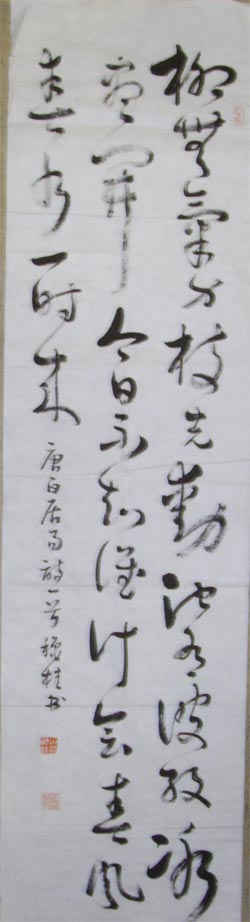 柳無氣力枝先動池有波紋冰
盡開今日不知誰計會春風
春水一時來
唐白居易詩一首 穆桂书